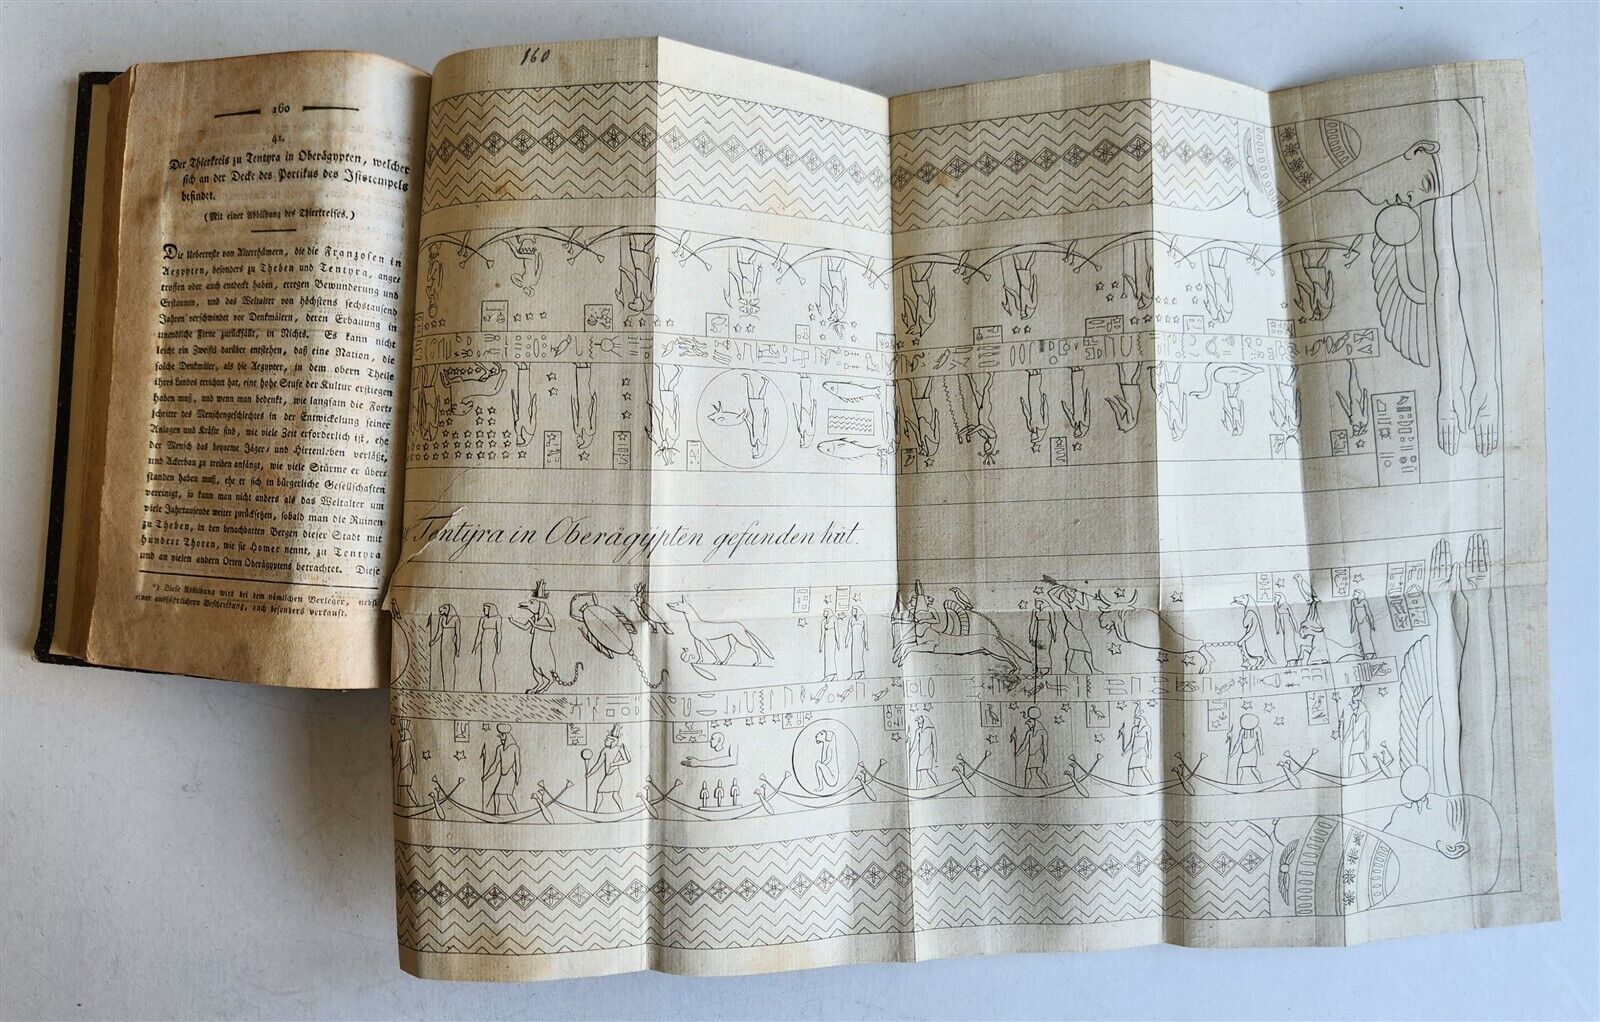 160
41.
Der Thierkreis zu Tentyra in Oberägypten, welcher
sich an der Decke des Portikus des Isistempels
befindet.
(Mit einer Abbildung des Thierkreises.)
Die Ueberreste von Alterthümern, die die Franzosen in
Aegypten, besonders zu Theben und Tentyra, ange-
troffen oder auch entdeckt haben, erregen Bewunderung und
Erstaunen, und das Weltalter von höchstens sechstausend
Jahren verschwindet vor Denkmälern, deren Erbauung in
unendliche Ferne zurückfällt, in Nichts. Es kann nicht
leicht ein Zweifel darüber entstehen, daß eine Nation, die
solche Denkmäler, als die Aegypter, in dem obern Theile
ihres Landes errichtet hat, eine hohe Stufe der Kultur erstiegen
haben muß, und wenn man bedenkt, wie langsam die Fort-
schritte des Menschengeschlechtes in der Entwickelung seiner
Anlagen und Kräfte sind, wie viele Zeit erforderlich ist, ehe
der Mensch das bequeme Jäger- und Hirtenleben verläßt,
und Ackerbau zu treiben anfängt, wie viele Stürme er über-
standen haben muß, ehe er sich in bürgerliche Gesellschaften
vereinigt, so kann man nicht anders als das Weltalter um
viele Jahrtausende weiter zurücksetzen, sobald man die Ruinen
zu Theben, in den benachbarten Bergen dieser Stadt mit
hundert Thoren, wie sie Homer nennt, zu Tentyra
und an vielen andern Orten Oberägyptens betrachtet. Diese
*) Diese Abbildung wird bei dem nämlichen Verleger, nebst
einer ausführlichern Beschreibung, auch besonders verkauft.
160
Tentyra in Oberägypten gefunden hat.